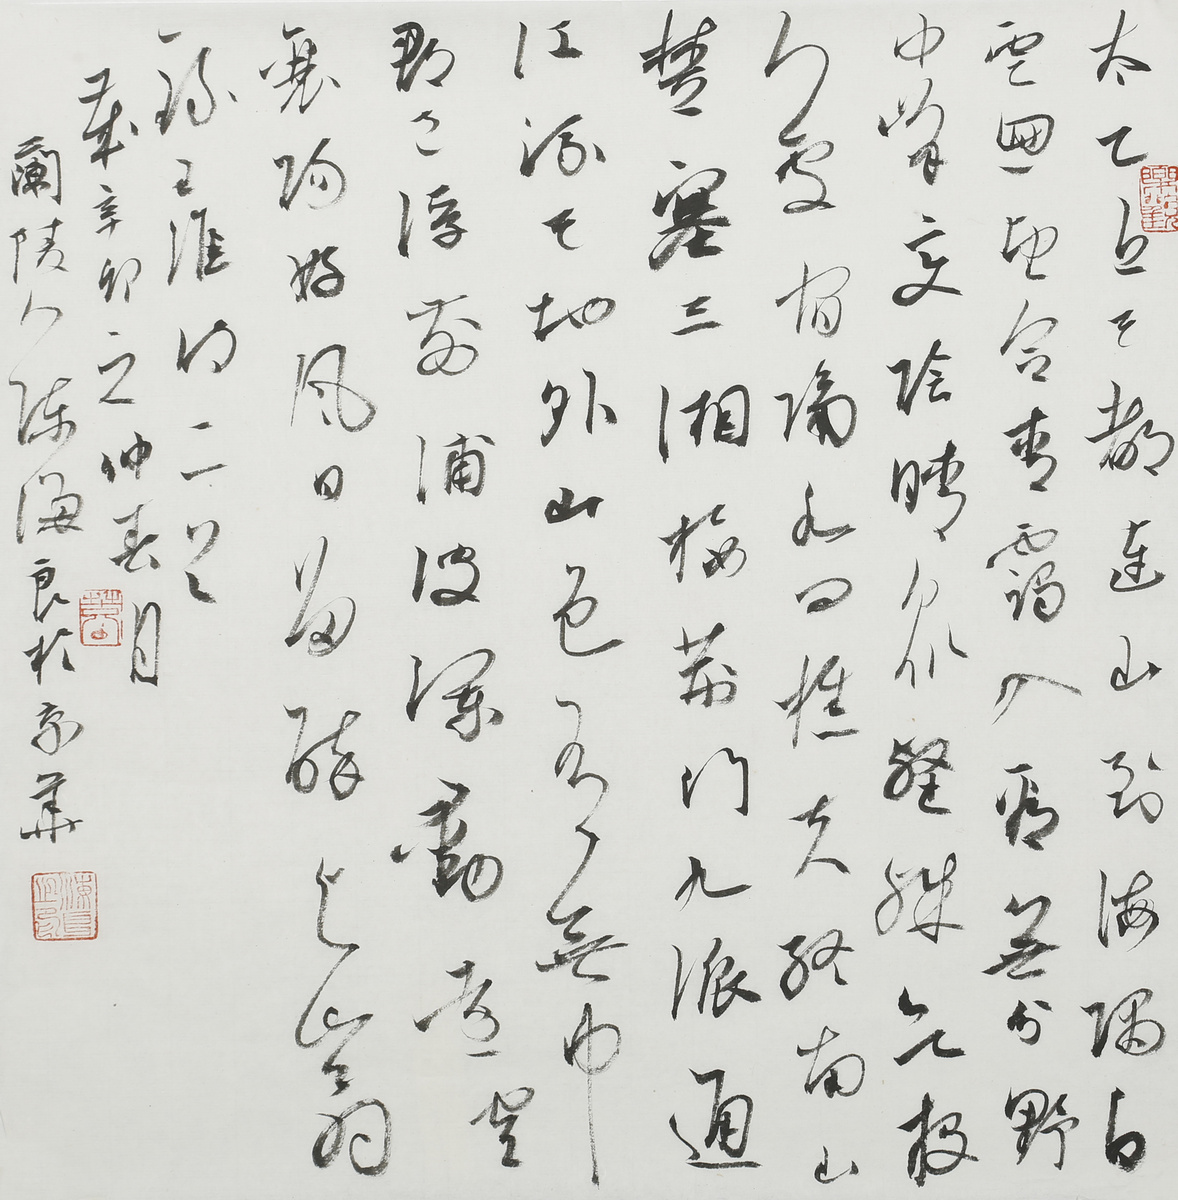 太乙近天都連山到海隅白
雲迴望合青靄入看無分野
中峯變陰晴眾壑殊欲投
人處宿隔水問樵夫終南山
楚塞三湘接荊門九派通
江流天地外山色有無中
郡邑浮前浦波瀾動遠空
襄陽好風日留醉與山翁
錄王維詩二首
歲辛卯之仲春月
蘭陵人陳海良於京華